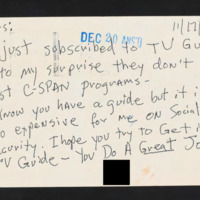 11/17/
DEC 20 REC'D
just subscribed to TV Gu
to my surprise they don't
st C-SPAN programs-
know you have a guide but it i
o expensive for me on Social
ecurity. I hope you try to Get i
V Guide - You Do A Great Jo